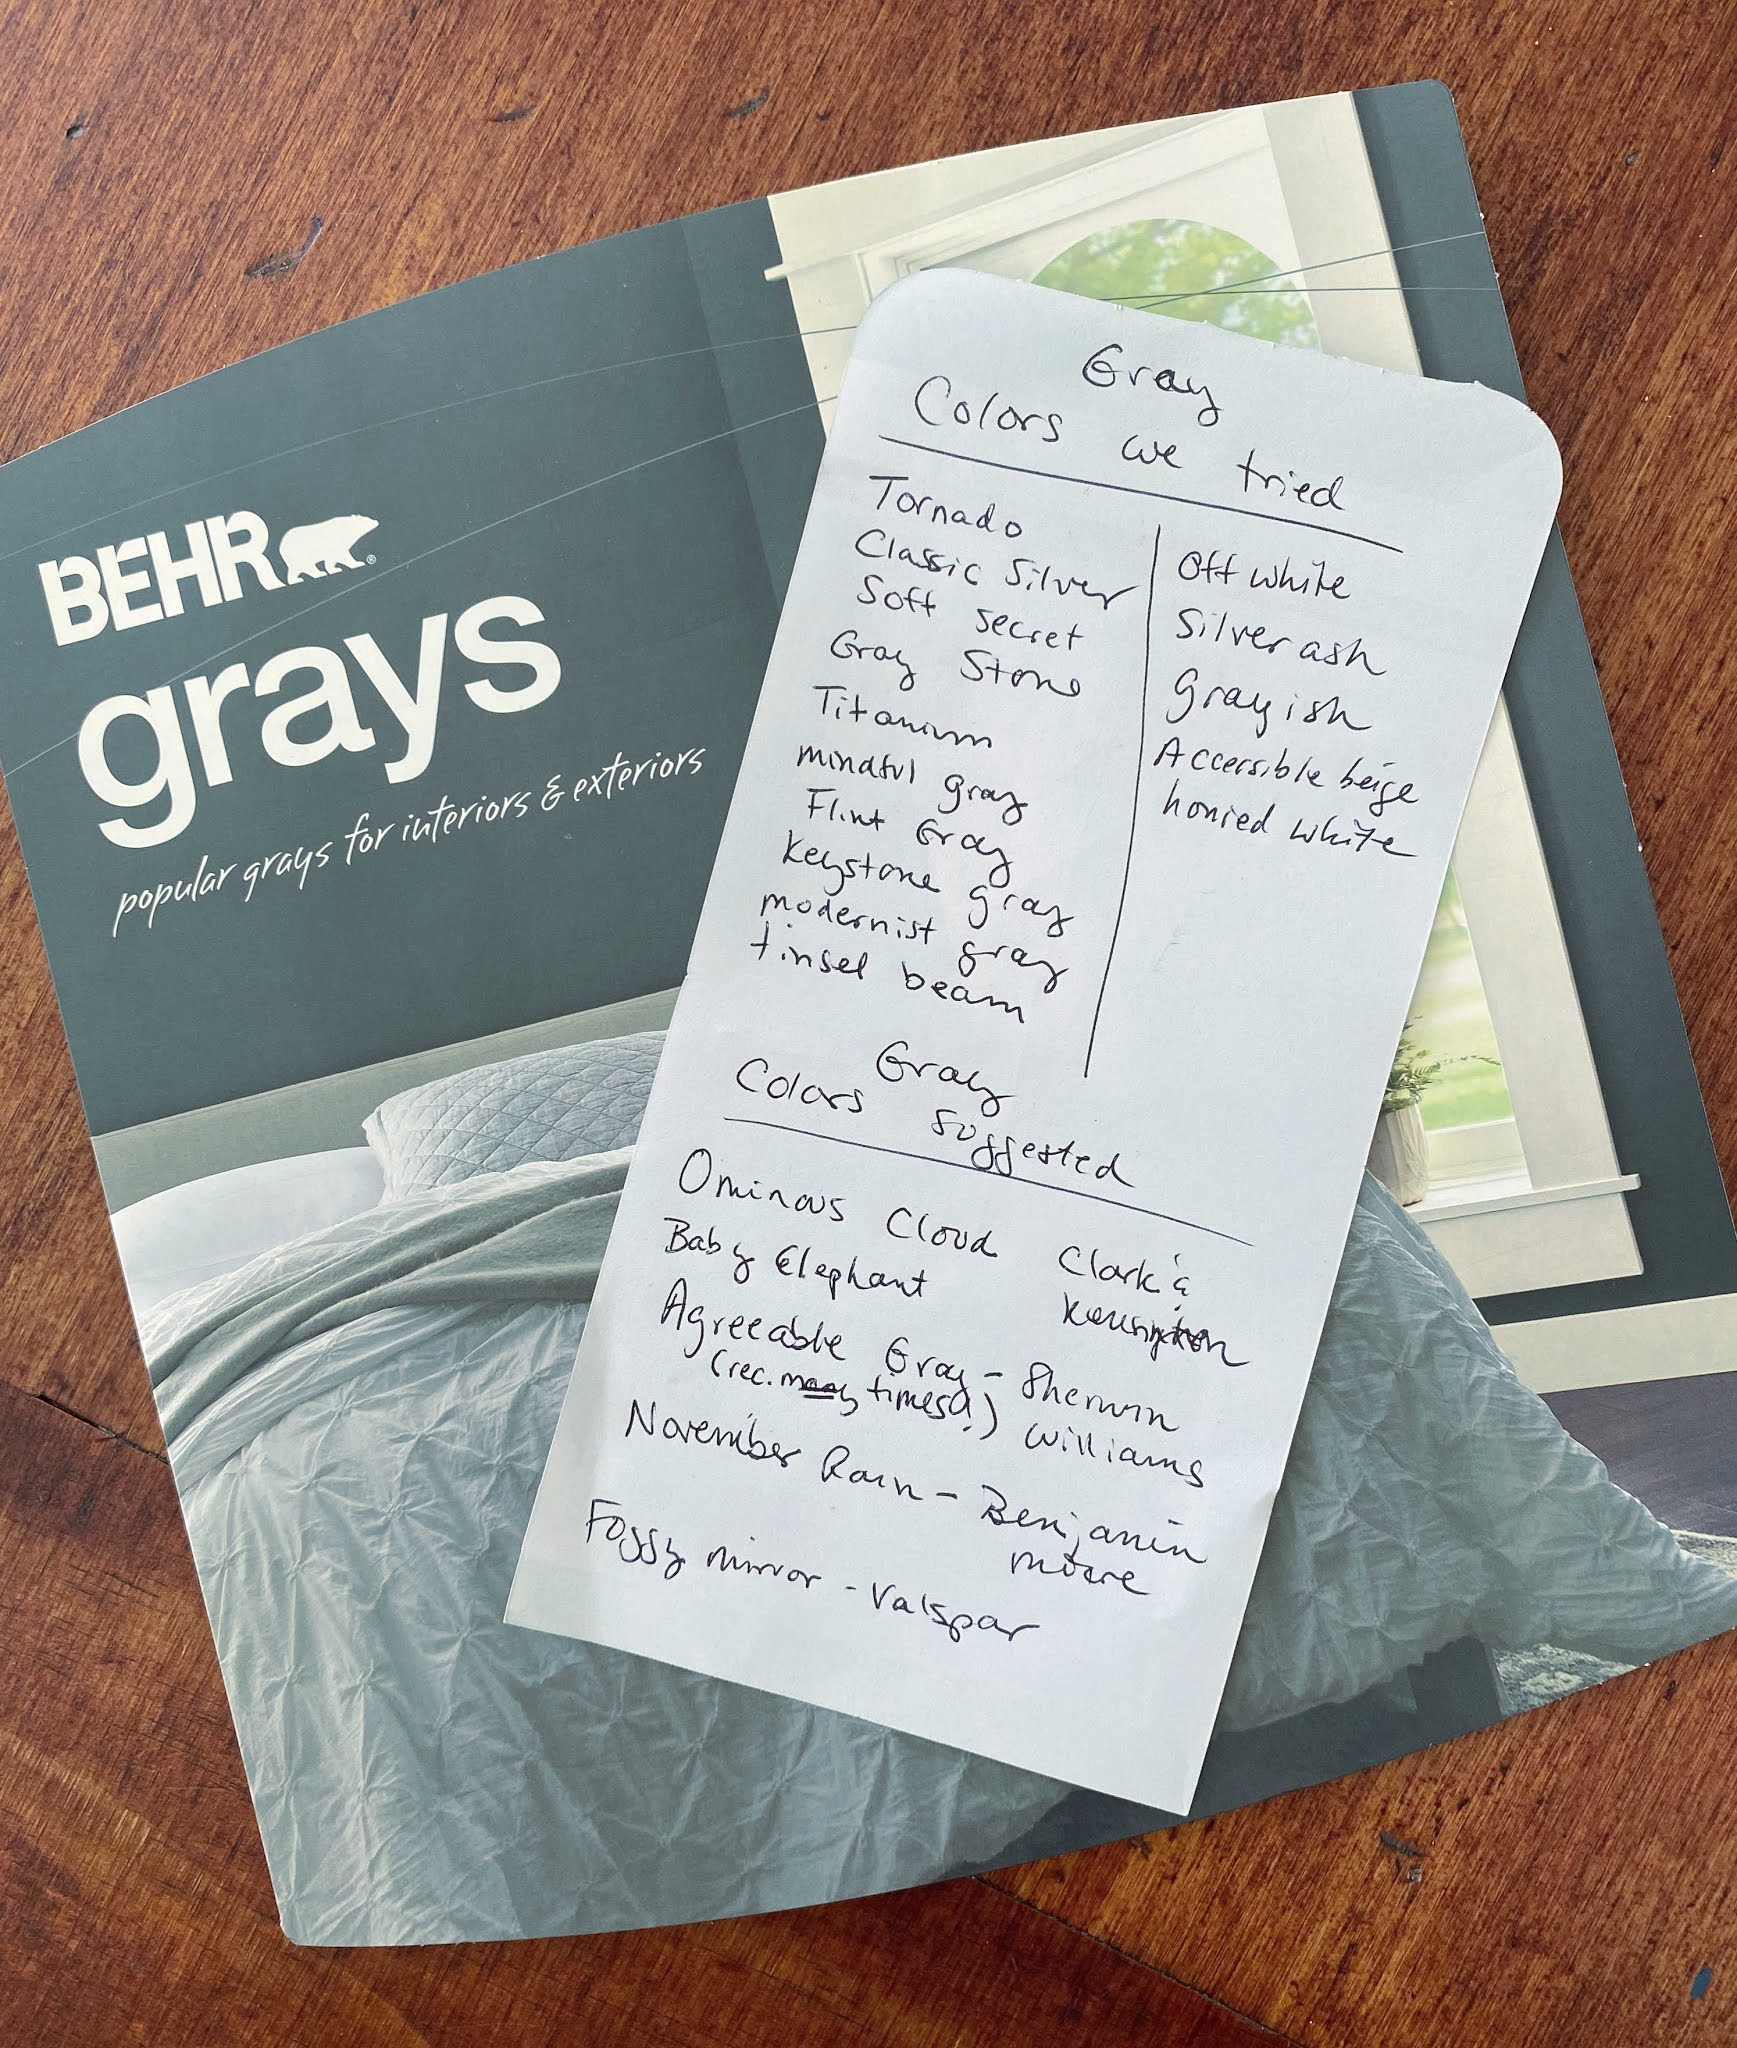 BEHR
grays
popular grays for interiors & exteriors
Gray
Colors we tried
Tornado
Classic Silver
Soft secret
Gray Stone
Titanium
mindful gray
Flint Gray
Keystone gray
modernist gray
tinsel beam
Off white
Silver ash
grayish
Accessible beige
honied white
Gray
Colors suggested
Ominous Cloud Clark &
Baby Elephant Kensington
Agreeable Gray - Sherwin
(rec. many times!) Williams
November Rain - Benjamin
moore
Foggy mirror - Valspar